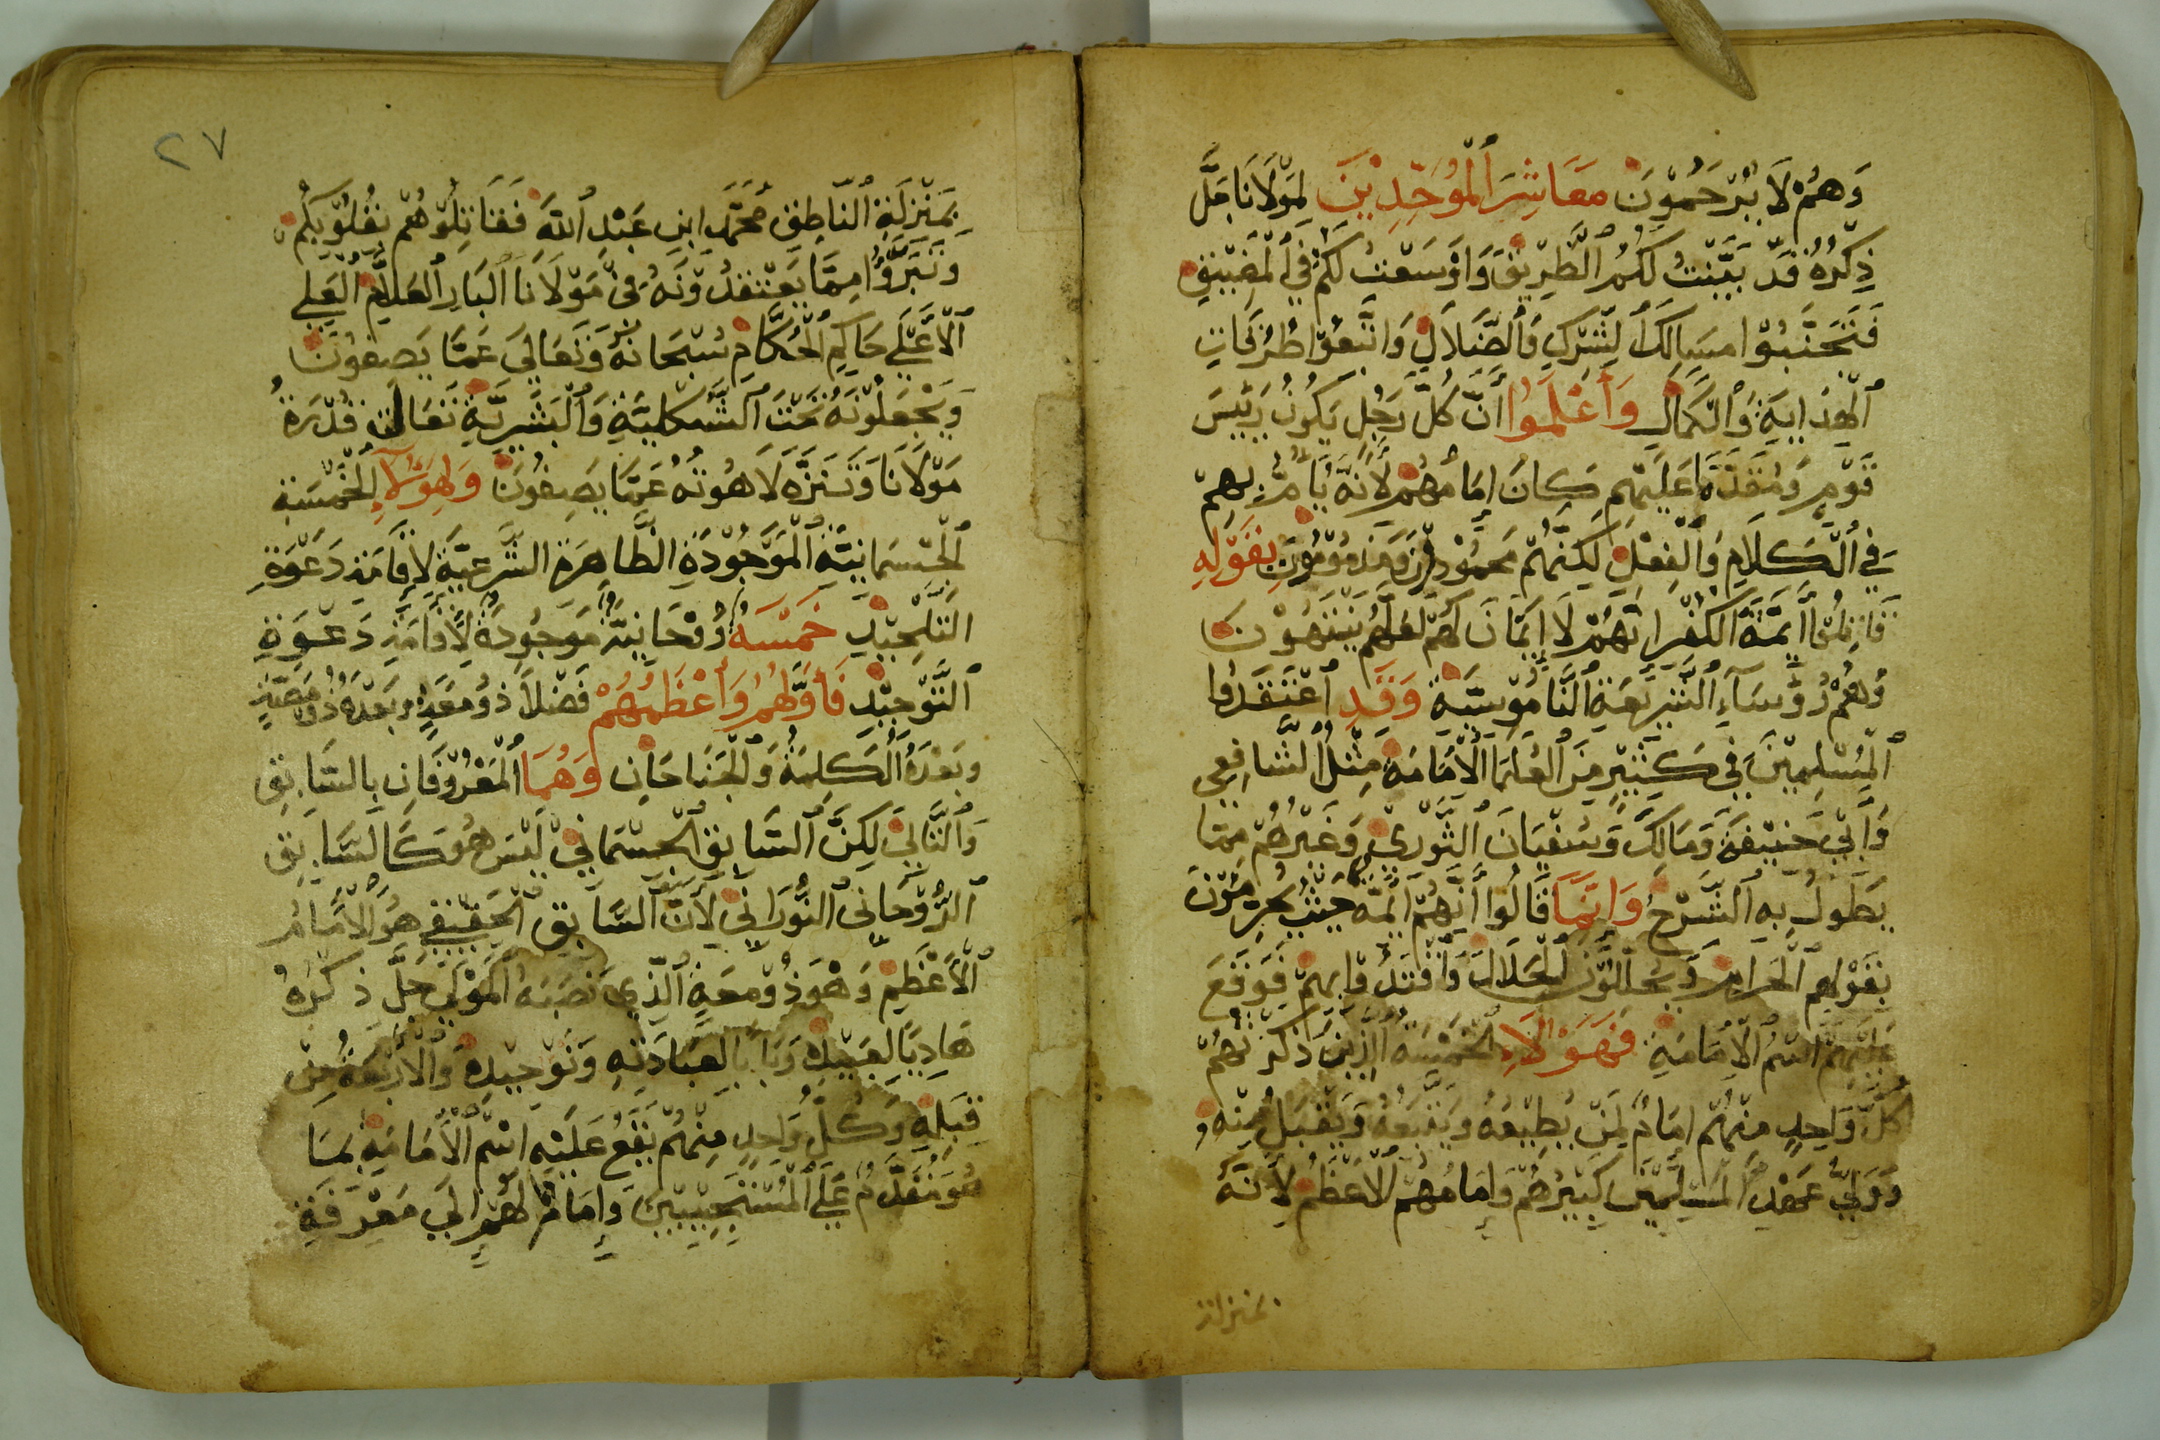 وَهُمْ لَا يُرْحَمُوْنَ مَعَاشِرَ ٱلْمُوَحِّدِيْنَ لِمَوْلَانَا جَلَّ
ذِكْرُهُ قَدْ بَيَّنْتُ لَكُمُ ٱلطَّرِيْقَ وَاَوْسَعْتُ لَكُمْ فِي ٱلْمَضِيْقِ
فَتَجَنَّبُوْا مَسَالِكَ ٱلشِّرْكِ وَٱلضَّلَالِ وَاتَّبِعُوْا طُرُقَاتِ
ٱلْهِدَايَةِ وَٱلْكَمَالِ وَأَعْلَمُوا أَنَّ كُلَّ رَجُلٍ يَكُوْنُ رَئِيْسَ
قَوْمٍ وَمُقَدَّمًا عَلَيْهِمْ كَانَ إِمَامَهُمْ لِأَنَّهُ يَأْتَمُّ بِهِمْ
فِي ٱلْكَلَامِ وَٱلْفِعْلِ لَكِنَّهُمْ مَحْمُوْدُوْنَ وَمَذْمُوْمُوْنَ بِقَوْلِهِ
قَاتِلُوْا أَيِمَّةَ ٱلْكُفْرِ إِنَّهُمْ لَا إِيْمَانَ لَهُمْ لَعَلَّهُمْ يَنْتَهُوْنَ
وَهُمْ رُؤَسَآءِ ٱلشَّرِيْعَةِ ٱلنَّامُوْسِيَّةِ وَقَدِ ٱعْتَقَدُوا
ٱلْمُسْلِمِيْنَ فِي كَثِيْرٍ مِنَ ٱلْعُلَمَا ٱلْأَمَامَه مِثْلُ ٱلشَّافِعِي
وَأَبِيْ حَنِيْفَةَ وَمَالِكَ وَسُفْيَانَ ٱلثَّوْرِيِّ وَغَيْرُهُمْ مِمَّا
يَطُوْلُ بِهِ ٱلشَّرْحُ وَإِنَّمَا قَالُوا أَنَّهُمْ أَيِمَّه حَيْثُ يُحَرِّمُوْنَ
بِقَوْلِهِمِ ٱلْحَرَامِ وَيُحَلِّلُوْنَ ٱلْحَلَالَ وَٱقْتَدُوْا بِهِمْ فَوَقَعَ
عَلَيْهِمْ اسْمُ ٱلْأَمَامَةِ فَهَؤلَاءِ ٱلْخَمْسَه ٱلذِيْنَ ذَكَرْتُهُمْ
كُلُّ وَاحِدٍ مِنْهُمْ اِمَامٌ لِمَنْ يُطِيْعُهُ وَيَتْبَعُهُ وَيَقْبَلُ مِنْهُ وَ
وَوَلِيُّ عَهْدِ ٱلْمُسْلِمِيْنَ كَبِيْرُهُمْ وَإِمَامُهُمْ ٱلْأَعْظَمْ لِأَنَّهُ
بمنزلة
٢٧
بِمَنْزِلَةِ ٱلنَّاطِقِ مُحَمَّدِ ابنِ عَبْدِ ٱللّٰهَ فَقَاتِلُوْهُمْ بِقُلُوْبِكُمْ
وَتَبَرَّؤُا مِمَّا يَعْتَقِدُوْنَهُ فِيْ مَوْلَانَا ٱلْبَارِ ٱلْعَلَّامِ ٱلْعَلِي
ٱلْأَعْلَى حَاكِمِ ٱلْحُكَّامِ سُبْحَانَهُ وَتَعَالَى عَمَّا يَصِفُوْنَ
وَيَجْعَلُوْنَهُ تَحْتَ ٱلشَّكْلِيَّةِ وَٱلْبَشَرِيَّةِ تَعَالَت قُدْرَةُ
مَوْلَانَا وَتَنَزَّهَ لَاهُوْتُهُ عَمَّا يَصِفُوْنَ وَلِهَؤُلَآءِ ٱلْخَمْسَةِ
ٱلْجِسْمَانِيَّةِ ٱلْمَوْجُوْدَةِ ٱلظَّاهِرَةِ ٱلشَّرْعِيَّةِ لِإِقَامَةِ دَعْوَةِ
التَّلْحِيْدِ خَمْسَه رُوْحَانِيَّة مَوْجُوْدَةً لِأَقَامَةِ دَعْوَةِ
ٱلتَّوْحِيْدِ فَأَوَّلُهُمُ وَأَعْظَمُهُمْ فَضْلًا ذُوْ مَعَةٍ وَبَعْدَهُ ذُوْ مَصَّةٍ
وَبَعْدَهُ ٱلْكَلِمَةُ وَٱلْجَنَاحَانِ وَهُمَا ٱلْمَعْرُوْفَانِ بِالسَّابِقِ
وَٱلتَّالِيْ لَكِنَّ ٱلسَّابِقَ ٱلْجِسْمَانِيْ لَيْسَ هُوَ كَٱلسَّابِقِ
ٱلرُّوْحَانِى ٱلنُّوْرَانِيْ لِأَنَّ ٱلسَّابِقَ ٱلْحَقِيْقِي هُوَ ٱلْأَمَامُ
ٱلْأَعْظَمُ وَهُوَ ذُوْ مَعَةٍ ٱلَّذِي نَصَبَهُ ٱلْمَوْلَى جَلَّ ذِكْرُهُ
هَادِيًا لِعَبِيْدِهِ وَبَابًا لِعِبَادَتِهِ وَتَوْحِيْدِهِ وَٱلْأَرْبَعَةُ مِنْ
قِبَلِهِ وَكُلُّ وَاحِدٍ مِنْهُمْ يَقَعُ عَلَيْهِ اسْمُ ٱلْأَمَامَةِ بِمَا
هُوَ مُقَدَّمٌ عَلَى ٱلْمُسْتَجِيْبِيْنَ وَإِمَامًا لَهُمْ إِلَى مَعْرِفَةِ